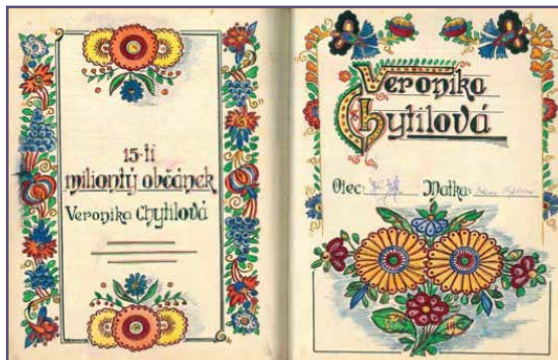 15-tí
miliontý občánek
Veronika Chytilová
Veronika
Chytilová
Otec: Matka: